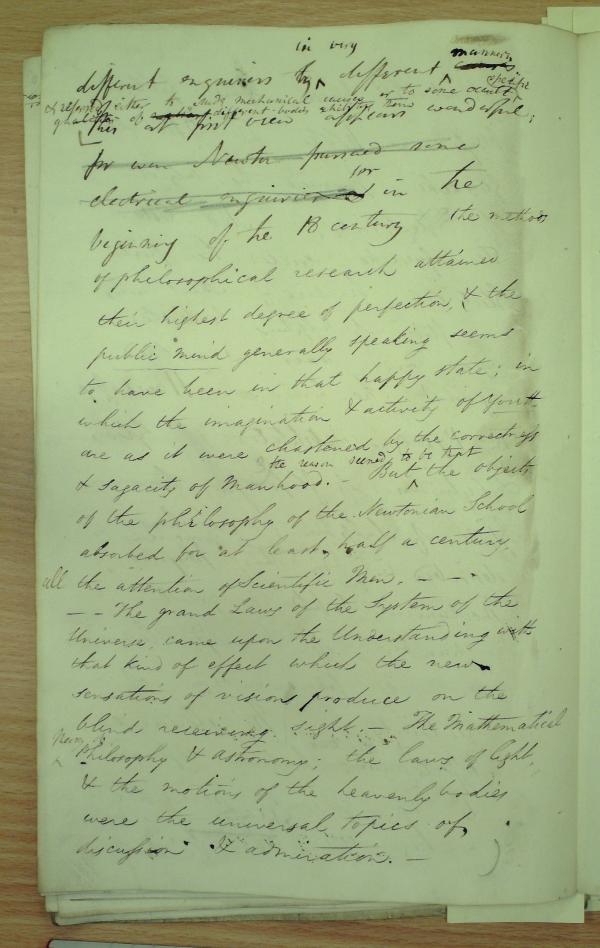 in very
different enquirers by different manners
& referred either to mechanical causes or to some occult specific
qualities of different bodies
This at first view appears wonderful;
for even Newton pursued some
electrical enquiries
for in the
beginning of the 18 century the methods
of philosophical research attained
their highest degree of perfection, & the
public mind generally speaking seems
to have been in that happy state; in
which the imagination & activity of Youth
are as it were chastened by the correctness
& sagacity of Manhood. –
the reason seems to be that
But the objects
of the philosophy of the Newtonian School
absorbed for at least half a century
all the attention of Scientific Men. – –
– – The grand Laws of the System of the
Universe, came upon the Understanding with
that kind of effect which the new
sensations of vision produce on the
blind receiving sight. – The Mathematical
Philosophy & astronomy; the laws of light,
& the motions of the heavenly bodies
were the universal topics of
discussion & admiration. –